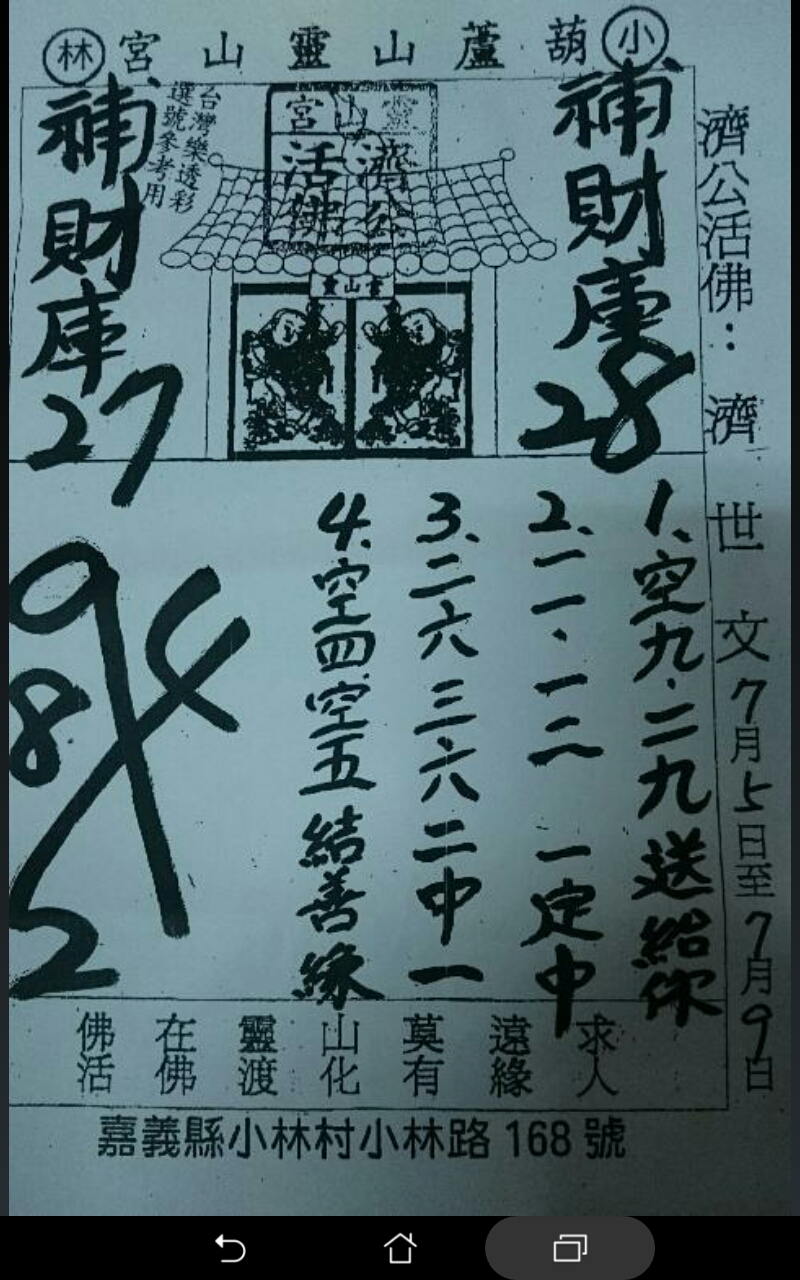 小 葫蘆山靈山宮 林
濟公活佛：濟世文 7月5日至7月9日
補財庫
28
靈山宮
濟公
活佛
靈山宮
台灣樂透彩
選號參考用
補財庫
27
1、空九．二九送給你
2、一一、一二 一定中
3、二六三六二中一
4、空四空五結善緣
9
4
8
2
求人
遠緣
莫有
山化
靈渡
在佛
佛活
嘉義縣小林村小林路168號